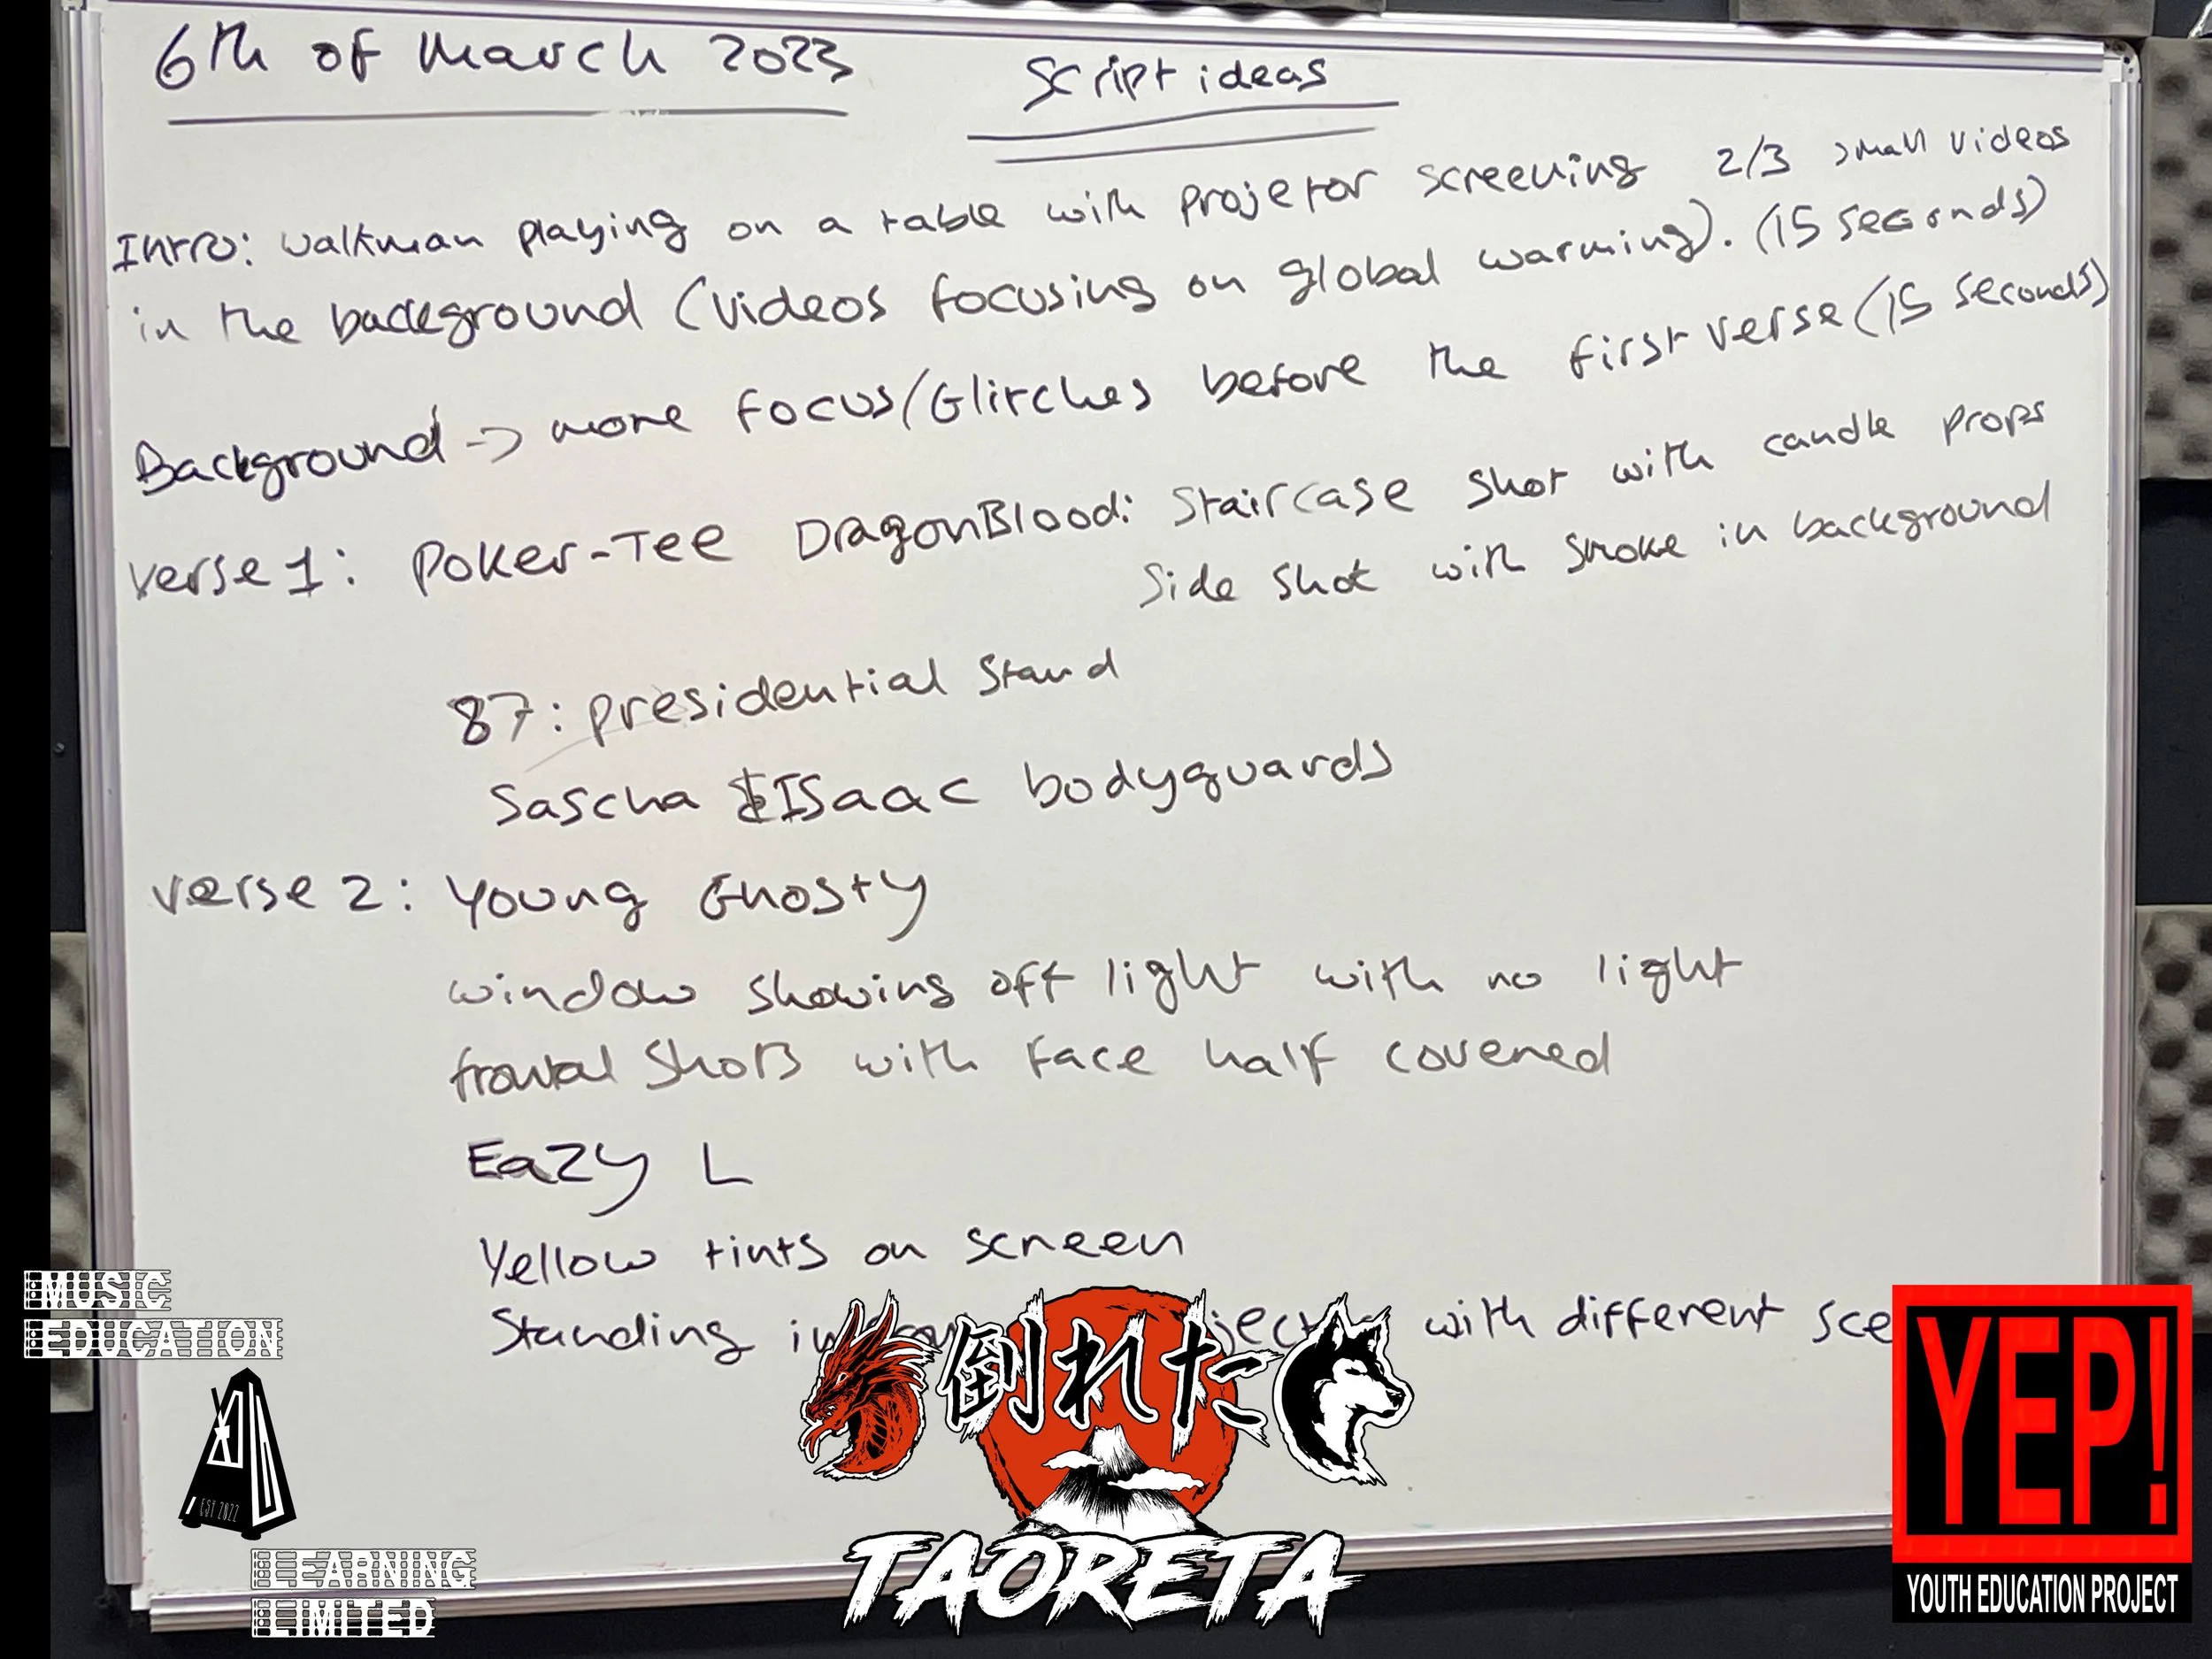 6th of March 2023
Script ideas
Intro: Walkman playing on a table with projetor screening 2/3 small videos
in the background (videos focusing on global warming). (15 seconds)
Background -> more focus/Glitches before the first verse (15 seconds)
verse 1: Poker-Tee DragonBlood: Staircase shot with candle props
Side shot with smoke in background
87: presidential stand
Sascha & Isaac bodyguards
verse 2: Young Ghosty
window showing off light with no light
frontal shots with face half covered
Eazy L
Yellow tints on screen
Standing in with different
MUSIC
EDUCATION
EST 2022
LEARNING
LIMITED
倒れた
TAORETA
YEP!
YOUTH EDUCATION PROJECT